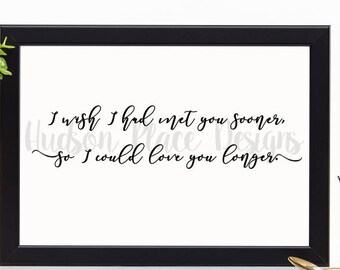 I wish I had met you sooner,
Hudson Place Designs
so I could love you longer.